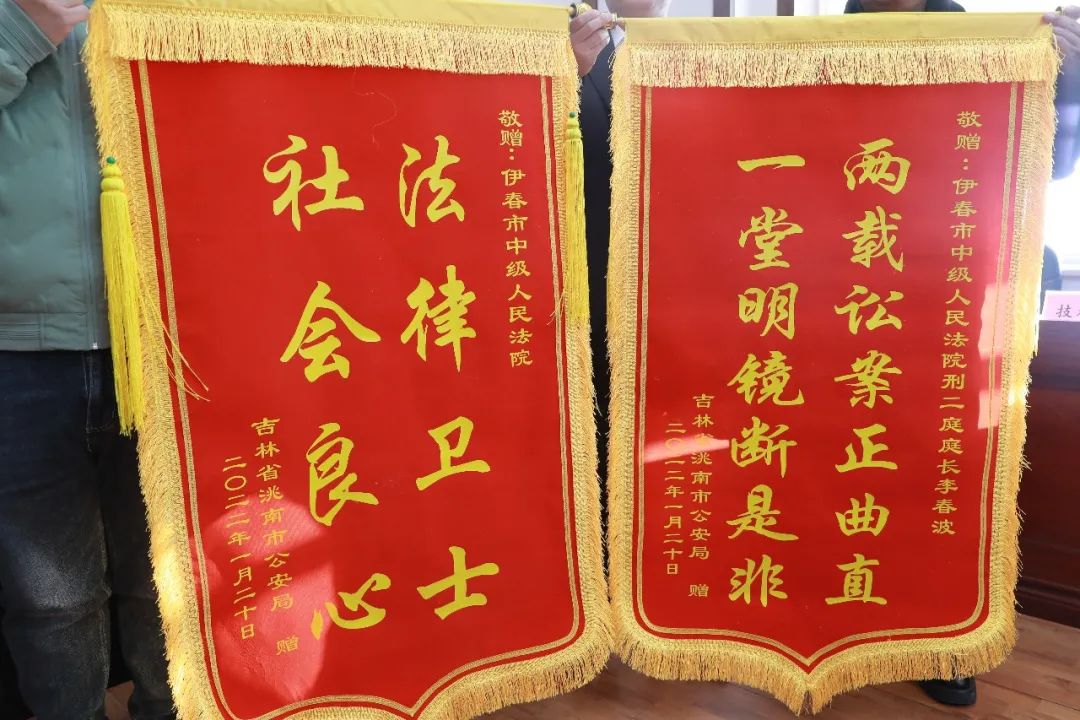 敬赠：伊春市中级人民法院
法律卫士
社会良心
吉林省洮南市公安局 赠
二〇二二年一月二十日
敬赠：伊春市中级人民法院刑二庭庭长李春波
两载讼案正曲直
一堂明镜断是非
吉林省洮南市公安局 赠
二〇二二年一月二十日
技